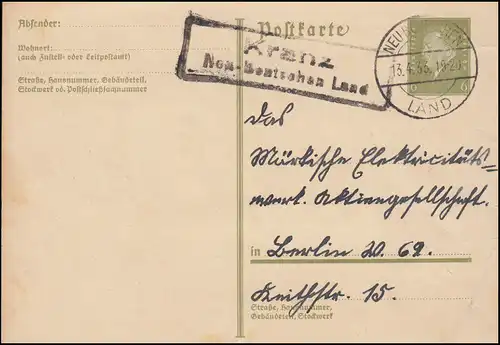 Absender:
Postkarte
Wohnort:
(auch Zustell- oder Leitpostamt)
Straße, Hausnummer, Gebäudeteil,
Stockwerk od. Postschließfachnummer
Kranz
Neu-Bentschen Land
13.4.33. 15-20
LAND
6 6
das
Märkische Elektricitäts=
werk. Aktiengesellschaft.
in Berlin W. 62.
Keithstr. 15.
Straße, Hausnummer,
Gebäudeteil, Stockwerk